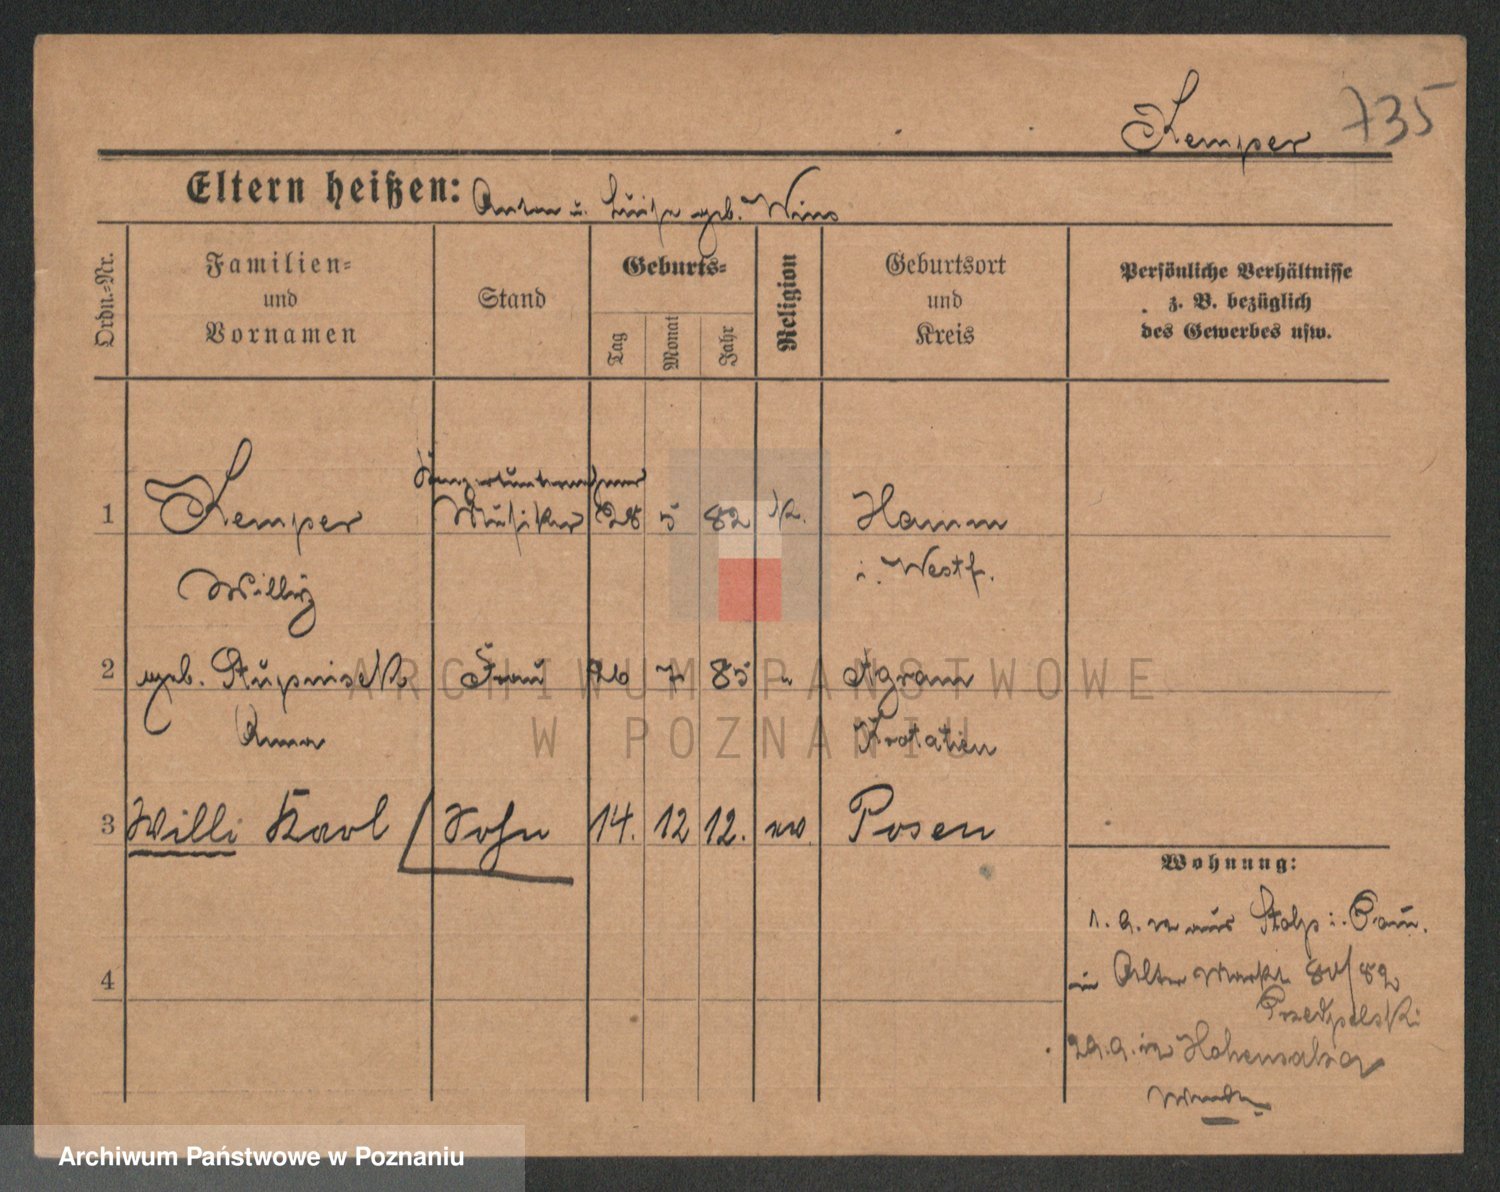 Kemper 735
Eltern heißen: Anton u. Luise geb. Wins
Ordn.-Nr.
Familien-
und
Vornamen
Stand
Geburts-
Tag
Monat
Jahr
Religion
Geburtsort
und
Kreis
Persönliche Verhältnisse
z. B. bezüglich
des Gewerbes usw.
1 Kemper Musiker 28 5 82 K. Hamm
Willy i. Westf.
2 geb. Stupnisek Frau 26 7 85 " Agram
Anna Kroatien
3 Willi Karl Sohn 14. 12 12. Posen
Wohnung:
1. 9. aus Stolp i. Pom.
in Alter Markt 80/82
29. 9. in Hohensalza
4
Wenden
ARCHIWUM PAŃSTWOWE
W POZNANIU
Archiwum Państwowe w Poznaniu